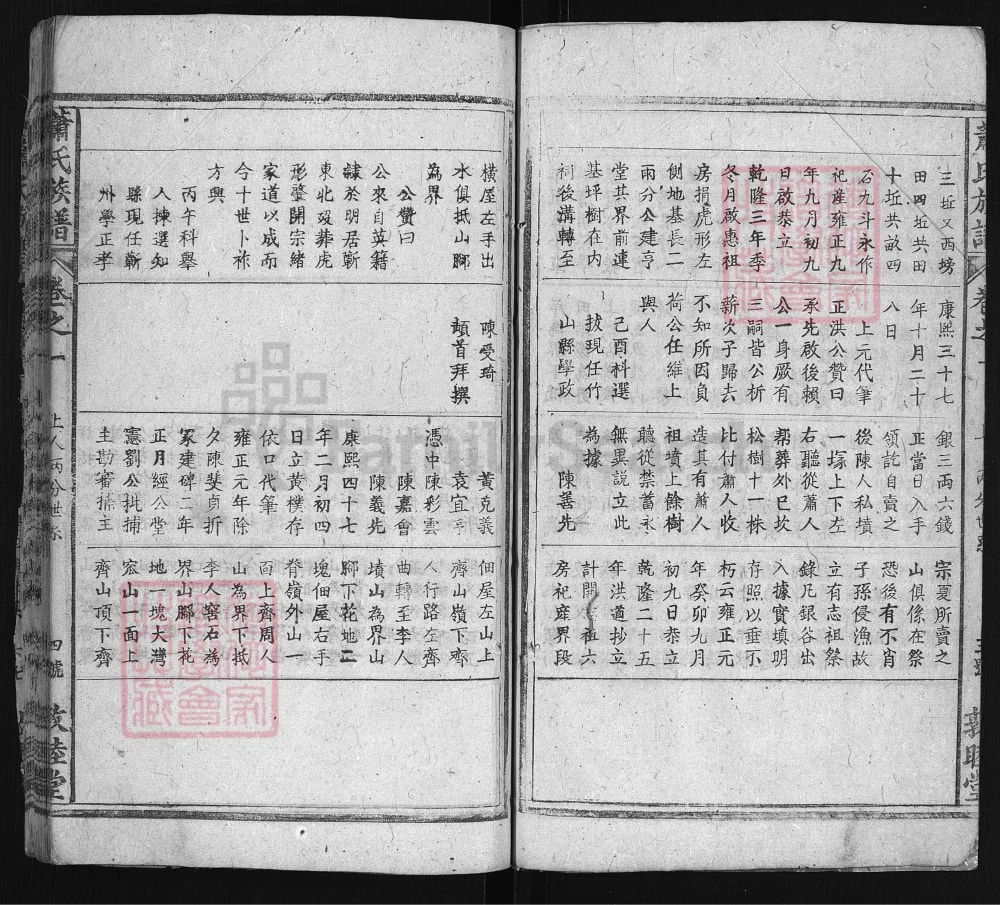 蕭氏族譜
卷之一
敦睦堂
三坵又西塝
田四坵共田
十坵共畝四
石九斗永作
祀產雍正九
年九月初九
日啟恭立
乾隆三年季
冬月啟惠祖
房捐虎形左
側地基長二
兩分公建亨
堂其界前連
基坪樹在内
祠後溝轉至
康熙三十七
年十月二十
八日
上元代筆
正洪公贊曰
承先啟後賴
公一身厥有
三嗣皆公析
薪次子歸去
不知所因負
荷公任維上
與人
己酉科選
拔現任竹
山縣學政
銀三兩六錢
正當日入手
領訖自賣之
後陳人私墳
一塚上下左
右聽從蕭人
幇葬外巳坎
松樹十一株
比付蕭人收
造其有蕭人
祖墳上餘樹
聽從禁蓄永
無異說立此
為據
陳善先
宗夏所賣之
山俱係在祭
恐後有不肖
子孫侵漁故
立有志祖祭
錄凡銀谷出
入據實填明
存照以垂不
朽云雍正元
年癸卯九月
初九日恭立
乾隆二十五
年洪道抄立
計開啟祖六
房祀產界段
橫屋左手出
水俱抵山腳
為界
公贊曰
公來自英籍
隸於明居蘄
東北双葬虎
形鑿開宗緒
家道以成而
今十世卜祚
方興
丙午科舉
人揀選知
縣現任蘄
州學正孝
陳受琦
頓首拜撰
黃克義
袁宜亨
憑中陳彩雲
陳嘉會
陳義先
康熙四十七
年二月初四
日立黃樸存
依口代筆
雍正元年除
夕陳斐貞折
冢建碑二年
正月經公堂
憲劉公批捕
主勘審捕主
佃屋左山上
齊山嶺下齊
人行路左齊
曲轉至李人
墳山為界山
腳下花地二
塊佃屋右手
脊嶺外山一
面上齊周人
山為界下抵
李人窖石為
界山腳下花
地一塊大灣
宏山一面上
齊山頂下齊
蕭氏族譜
卷之一
四號
敦睦堂